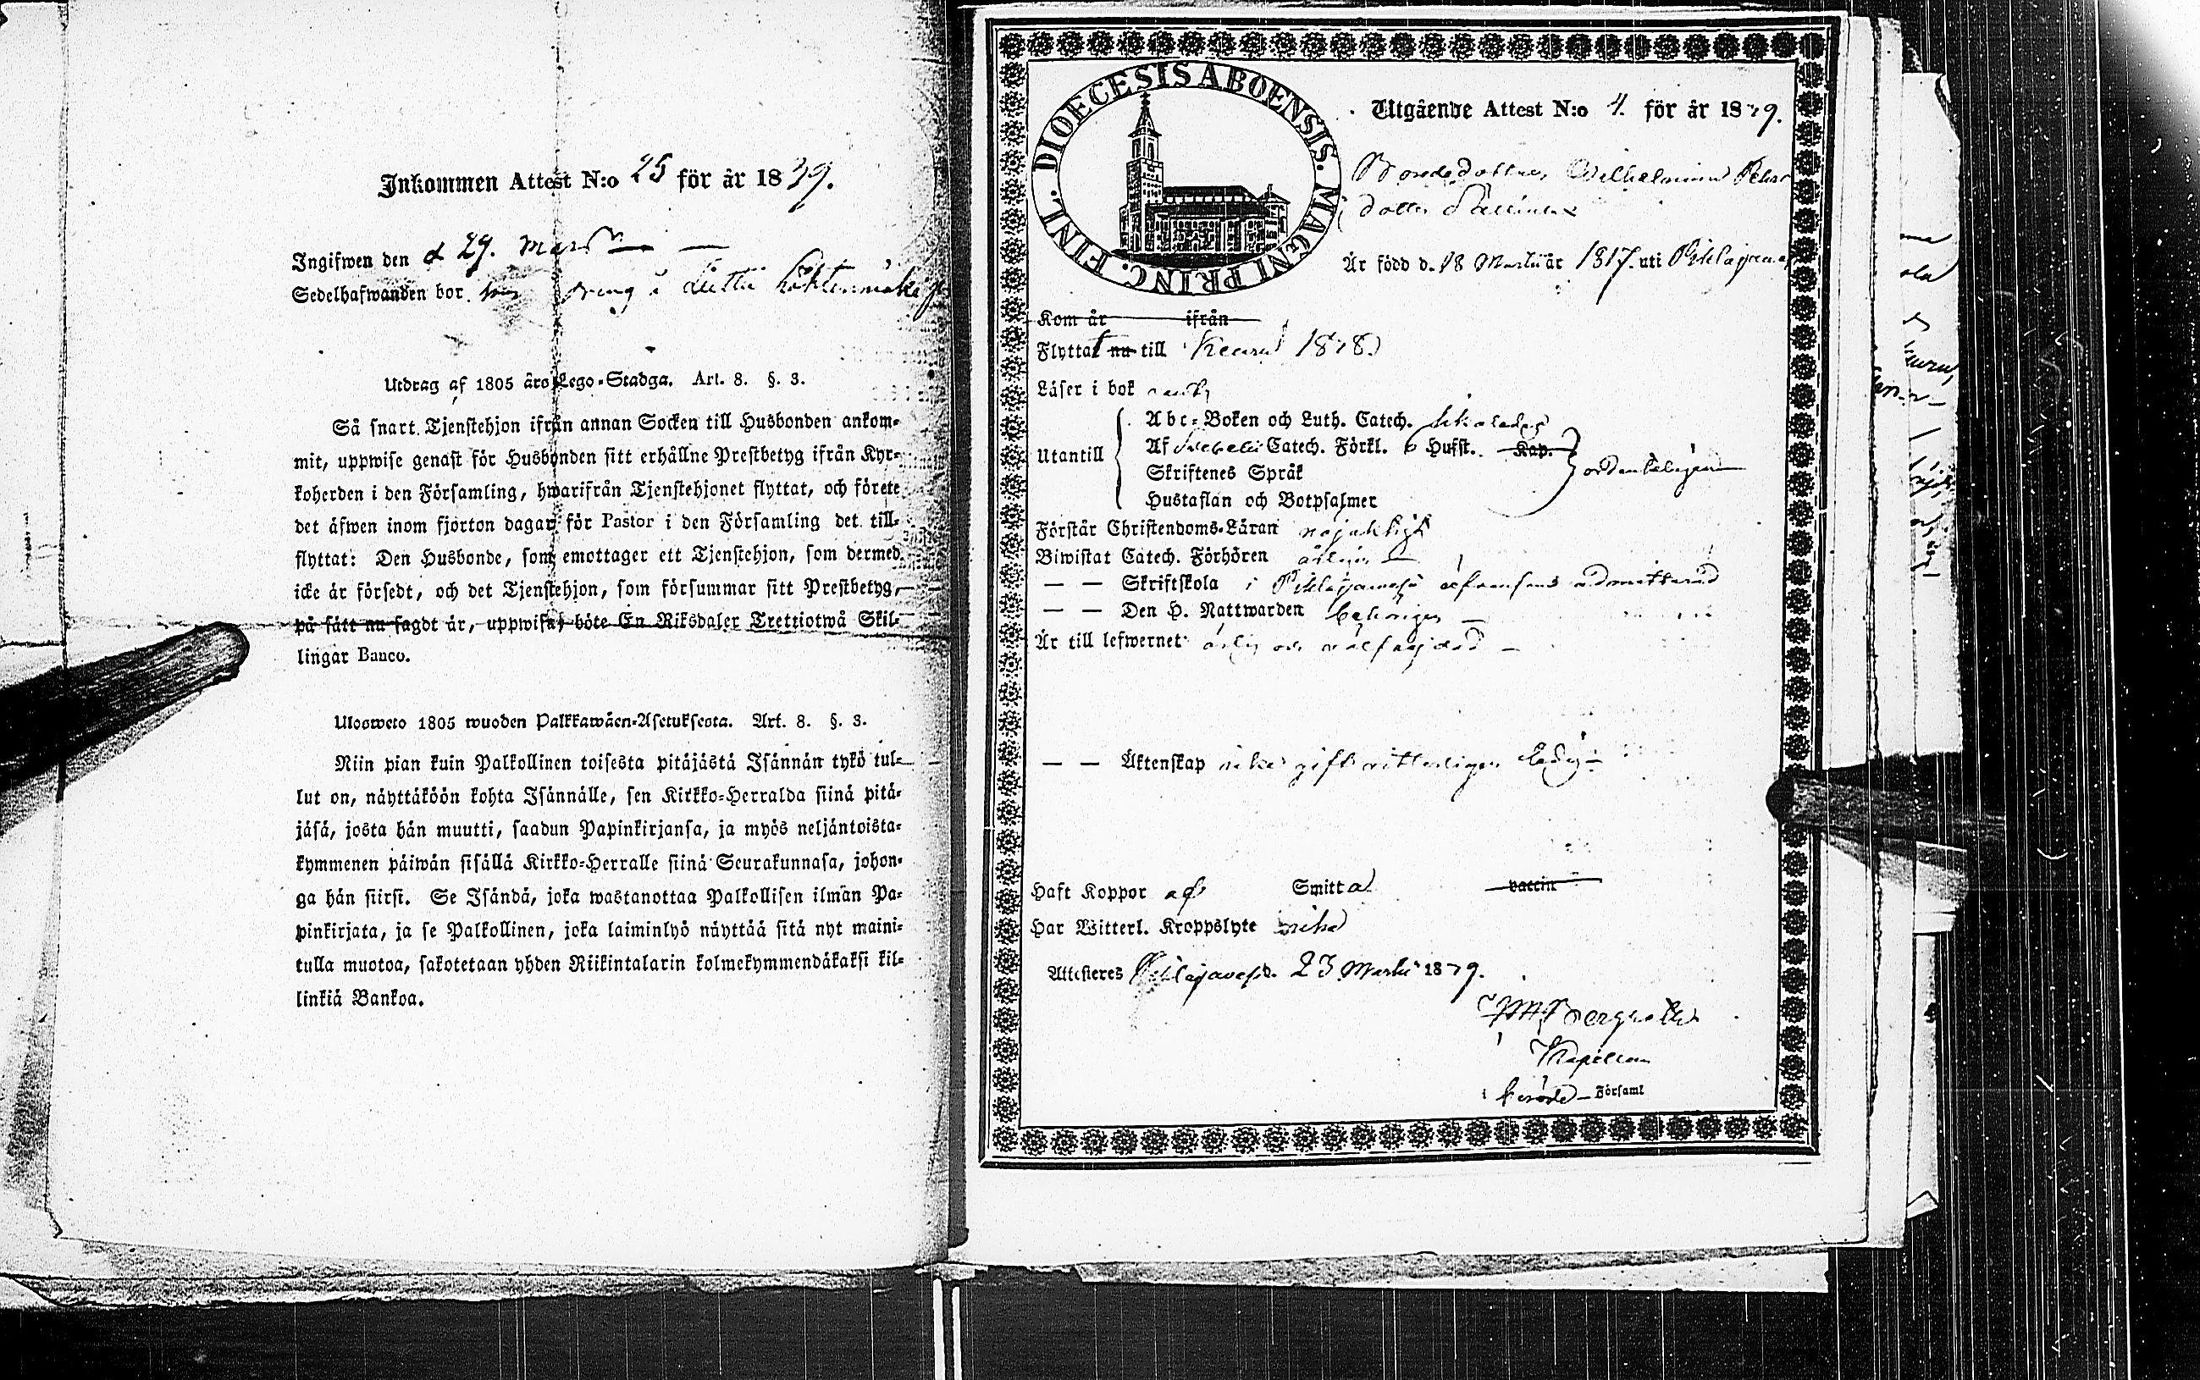 Inkommen Attest N:o 25 för år 1839.
Ingifwen den d 29. Mars
Sedelhafwanden bor
Utdrag af 1805 års Lego-Stadga. Art. 8. §. 3.
Så snart Tjenstehjon ifrån annan Socken till Husbonden ankom-
mit, uppwise genast för Husbonden sitt erhållne Prestbetyg ifrån Kyr-
koherden i den Församling, hwarifrån Tjenstehjonet flyttat, och förete
det äfwen inom fjorton dagar för Pastor i den Församling det till-
flyttat: Den Husbonde, som emottager ett Tjenstehjon, som dermed
icke är försedt, och det Tjenstehjon, som försummar sitt Prestbetyg,
på sätt nu sagdt är, uppwisa, böte En Riksdaler Trettiotwå Skil-
lingar Banco.
Ulosweto 1805 wuoden Palkkawäen-Asetuksesta. Art. 8. §. 3.
Niin pian kuin Palkollinen toisesta pitäjästä Isännän tykö tul-
lut on, näyttäköön kohta Isännälle, sen Kirkko-Herralda siinä pitä-
jäsä, josta hän muutti, saadun Papinkirjansa, ja myös neljäntoista-
kymmenen päiwän sisällä Kirkko-Herralle siinä Seurakunnasa, johon-
ga hän siirsi. Se Isändä, joka wastanottaa Palkollisen ilman Pa-
pinkirjata, ja se Palkollinen, joka laiminlyö näyttää sitä nyt maini-
tulla muotoa, sakotetaan yhden Riikintalarin kolmekymmendäkaksi kil-
linkiä Bankoa.
DIOECESIS ABOENSIS. MAGNI PRINC. FINL.
Utgående Attest N:o 4. för år 1839.
Bondedottren Wilhelmina
dotter
Är född d. 18 Martii år 1817. uti Pihlajavesi
Kom år ifrån
Flyttat nu till Keuru 1838
Läser i bok
Utantill
Abc-Boken och Luth. Catech.
Af Svebelii Catech. Förkl. 6 Hufst. Kap.
Skriftenes Språk
Hustaflan och Botpsalmer
ordenteligen
Förstår Christendoms-Läran nöjaktigt
Biwistat Catech. Förhören årligen
— — Skriftskola i Pihlajavesi admitterad
— — Den H. Nattwarden behörigen
Är till lefwernet ärlig och wälfrejdad
— — Äktenskap icke gift witterligen ledig
Haft Koppor af Smitta vaccin
Har Witterl. Kroppslyte icke
Attesteres Pihlajavesi d. 23 Martii 1839.
Kapellan
Församl